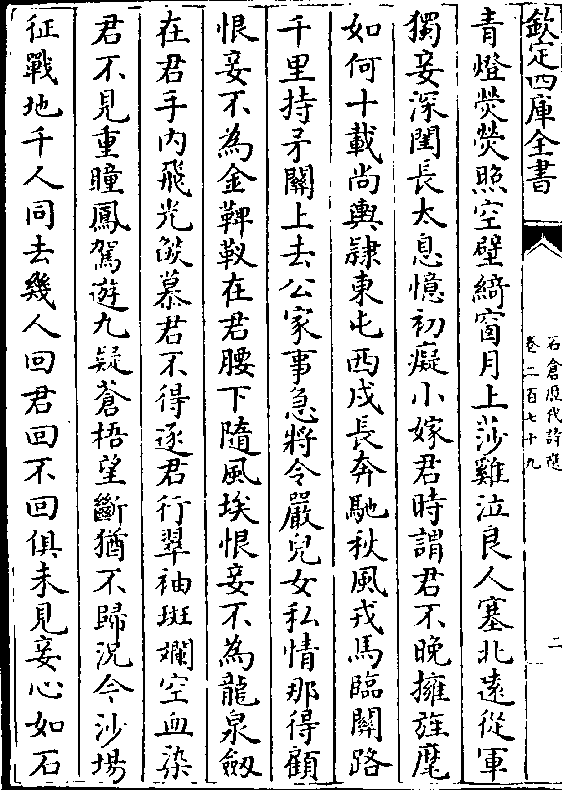 欽定四庫全書
石倉歷代詩選
卷二百七十九
二
青燈熒熒照空壁綺窗月上莎雞泣良人塞北遠從軍
獨妾深閨長太息憶初癡小嫁君時謂君不晚擁旌麾
如何十載尚輿隷東屯西戍長奔馳秋風戎馬臨關路
千里持矛關上去公家事急將令嚴兒女私情那得顧
恨妾不為金鞞靫在君腰下隨風埃恨妾不為龍泉劔
在君手内飛光燄慕君不得逐君行翠袖斑斕空血染
君不見重瞳鳳駕遊九疑蒼梧望斷猶不歸況今沙場
征戰地千人同去幾人回君回不回俱未見妾心如石